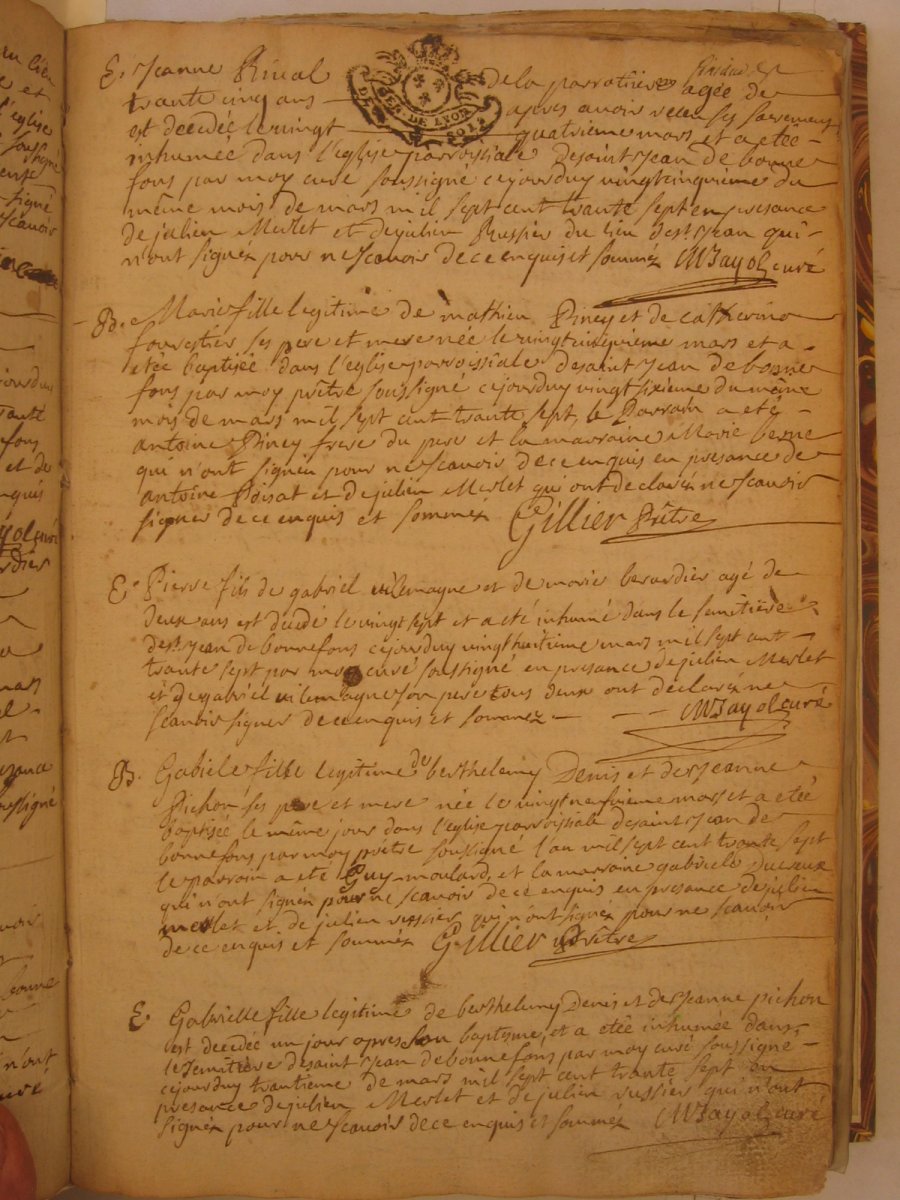 E. Jeanne Rival de la parroisse agée de
trante cinq ans apres avoir receu ses sacrements
GEN. DE LYON
est decedée le vingt quatrieme mars et a etée
inhumée dans l'eglise parroissiale de saint Jean de bonne
fons par moy curé soussigné cejourduy vingtcinquieme du
même mois de mars mil sept cent trante sept en presance
de julien Merlet et de julien Russier du lieu de st Jean qui
n'ont signéz pour ne scavoir de ce enquis et sommez MBayol curé
B. Marie fille legitime de mathieu Piney et de Catherine
fourestier ses pere et mere née le vingtcinquieme mars et a
etée baptisée dans l'eglise parroissiale de saint Jean de bonne
fons par moy prêtre soussigné cejourduy vingt sixieme du même
mois de mars mil sept cent trante sept, le Parrain a eté
antoine Piney frere du pere et la marraine Marie
qui n'ont signéz pour ne scavoir de ce enquis en presance de
antoine Poisat et de julien Merlet qui ont declaréz ne scavoir
signer de ce enquis et sommez Gillier Prêtre
E. Pierre fils de gabriel vilemagne et de marie berardier agé de
deux ans est decedé le vingt sept et a eté inhumé dans le semitière
de st. Jean de bonnefons cejourduy vingt huitieme mars mil sept cent
trante sept par moy curé soussigné en presance de julien Merlet
et de gabriel vilemagne son pere tous deux ont declaréz ne
scavoir signer de ce enquis et sommez MBayol curé
B. Gabiele fille legitime de berthelemy Denis et de Jeanne
Pichon ses pere et mere née le vingt neufvieme mars et a etée
baptisée le même jour dans l'eglise parroissiale de saint Jean de
bonnefons par moy prêtre soussigné l'an mil sept cent trante sept
le parrain a eté Guy moulard, et la marraine gabriele
qui n'ont signéz pour ne scavoir de ce enquis en presance de julien
merlet et de julien russier qui n'ont signéz pour ne scavoir
de ce enquis et sommez Gillier Prêtre
E. Gabrielle fille legitime de berthelemy Denis et de Jeanne pichon
est decedée un jour apres son baptême, et a etée inhumée dans
le semitière de saint Jean de bonnefons par moy curé soussigné
cejourduy trantieme de mars mil sept cent trante sept en
presance de julien Merlet et de julien russier qui n'ont
signéz pour ne scavoir de ce enquis et sommez MBayol curé